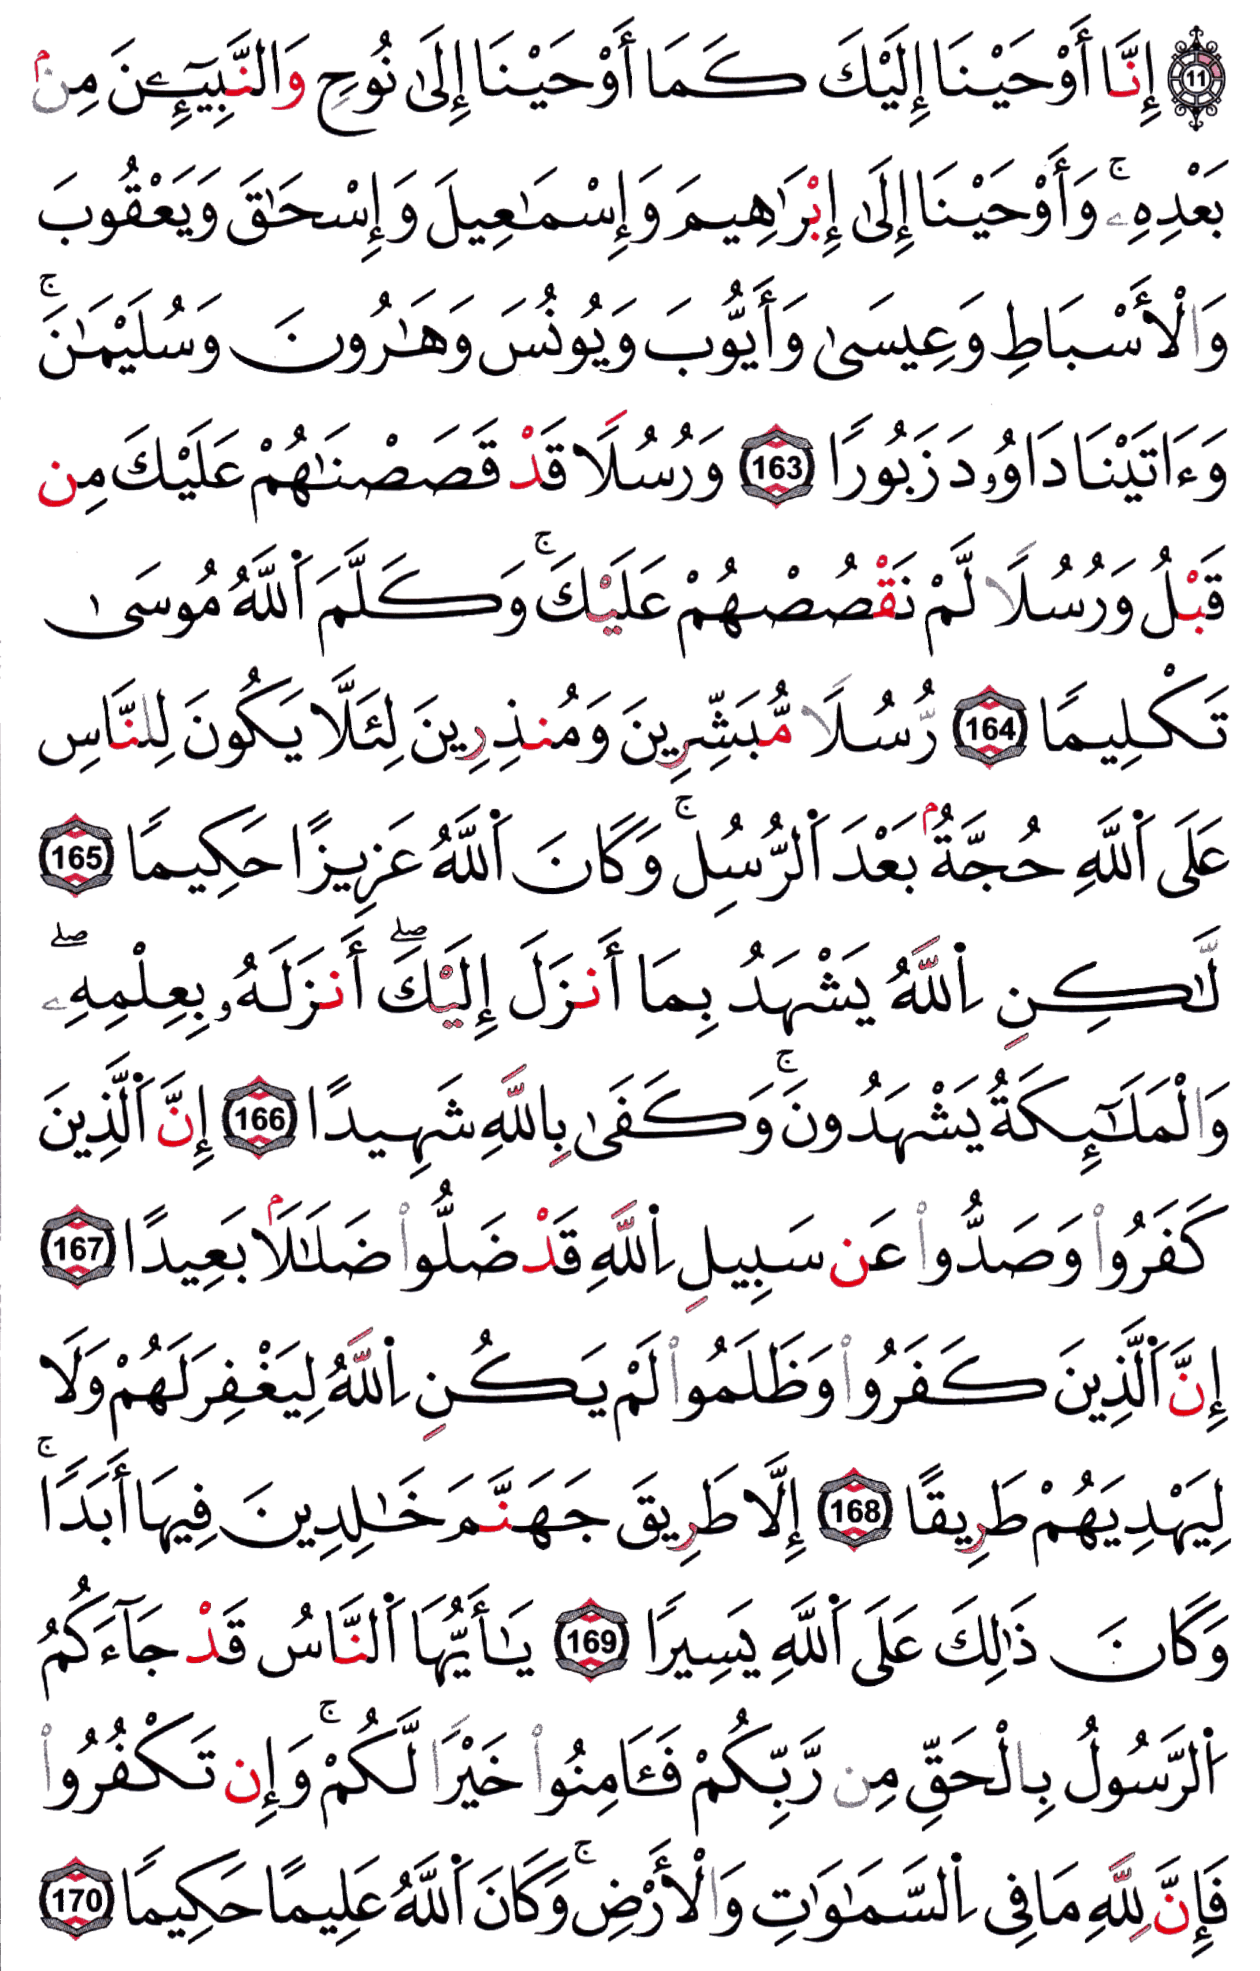 11 إِنَّا أَوْحَيْنَا إِلَيْكَ كَمَا أَوْحَيْنَا إِلَىٰ نُوحٍ وَالنَّبِيِّـۧنَ مِنۢ
بَعْدِهِۦ ۚ وَأَوْحَيْنَا إِلَىٰ إِبْرَٰهِيمَ وَإِسْمَٰعِيلَ وَإِسْحَٰقَ وَيَعْقُوبَ
وَالْأَسْبَاطِ وَعِيسَىٰ وَأَيُّوبَ وَيُونُسَ وَهَٰرُونَ وَسُلَيْمَٰنَ ۚ
وَءَاتَيْنَا دَاوُۥدَ زَبُورًا 163 وَرُسُلًا قَدْ قَصَصْنَٰهُمْ عَلَيْكَ مِن
قَبْلُ وَرُسُلًا لَّمْ نَقْصُصْهُمْ عَلَيْكَ ۚ وَكَلَّمَ ٱللَّهُ مُوسَىٰ
تَكْلِيمًا 164 رُّسُلًا مُّبَشِّرِينَ وَمُنذِرِينَ لِئَلَّا يَكُونَ لِلنَّاسِ
عَلَى ٱللَّهِ حُجَّةٌۢ بَعْدَ ٱلرُّسُلِ ۚ وَكَانَ ٱللَّهُ عَزِيزًا حَكِيمًا 165
لَّٰكِنِ ٱللَّهُ يَشْهَدُ بِمَا أَنزَلَ إِلَيْكَ ۖ أَنزَلَهُۥ بِعِلْمِهِۦ ۖ
وَالْمَلَٰٓئِكَةُ يَشْهَدُونَ ۚ وَكَفَىٰ بِاللَّهِ شَهِيدًا 166 إِنَّ ٱلَّذِينَ
كَفَرُوا۟ وَصَدُّوا۟ عَن سَبِيلِ ٱللَّهِ قَدْ ضَلُّوا۟ ضَلَٰلًۢا بَعِيدًا 167
إِنَّ ٱلَّذِينَ كَفَرُوا۟ وَظَلَمُوا۟ لَمْ يَكُنِ ٱللَّهُ لِيَغْفِرَ لَهُمْ وَلَا
لِيَهْدِيَهُمْ طَرِيقًا 168 إِلَّا طَرِيقَ جَهَنَّمَ خَٰلِدِينَ فِيهَا أَبَدًا ۚ
وَكَانَ ذَٰلِكَ عَلَى ٱللَّهِ يَسِيرًا 169 يَٰأَيُّهَا ٱلنَّاسُ قَدْ جَآءَكُمُ
ٱلرَّسُولُ بِالْحَقِّ مِن رَّبِّكُمْ فَـَٔامِنُوا۟ خَيْرًا لَّكُمْ ۚ وَإِن تَكْفُرُوا۟
فَإِنَّ لِلَّهِ مَا فِي ٱلسَّمَٰوَٰتِ وَالْأَرْضِ ۚ وَكَانَ ٱللَّهُ عَلِيمًا حَكِيمًا 170